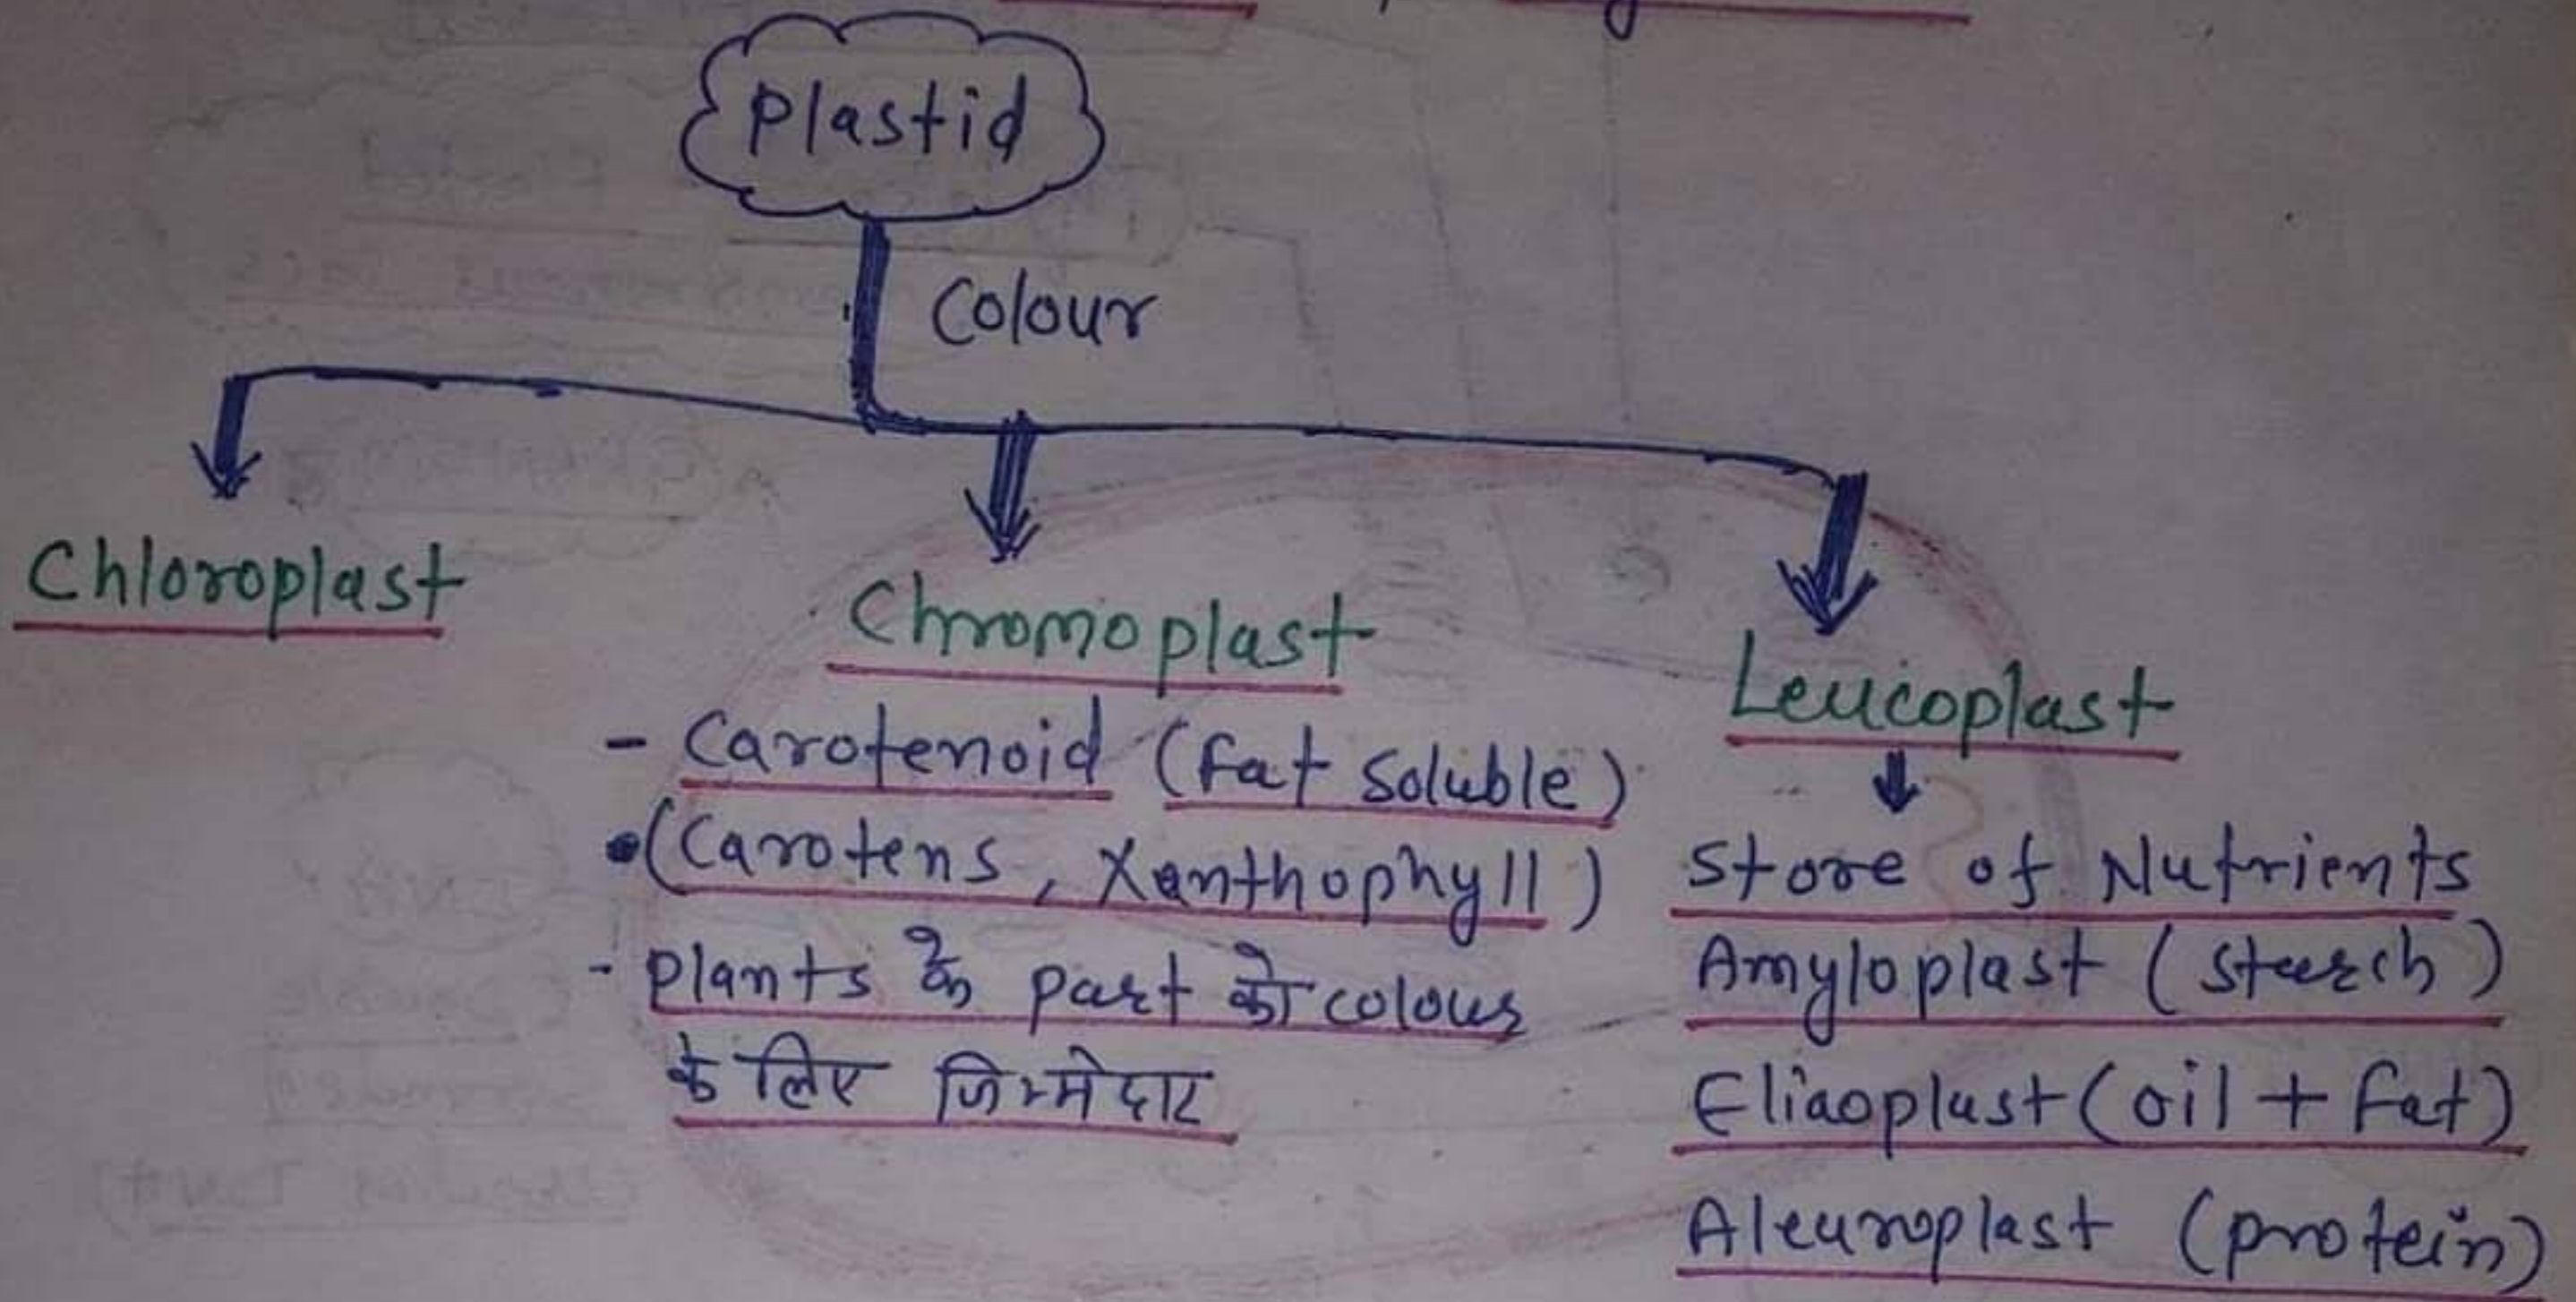 Plastid
Colour
Chloroplast
Chromoplast
- Carotenoid (fat soluble)
•(Carotens, Xanthophyll)
- plants के part को colour
के लिए जिम्मेदार
Leucoplast
Store of Nutrients
Amyloplast (starch)
Eliaoplast (oil + fat)
Aleuroplast (protein)